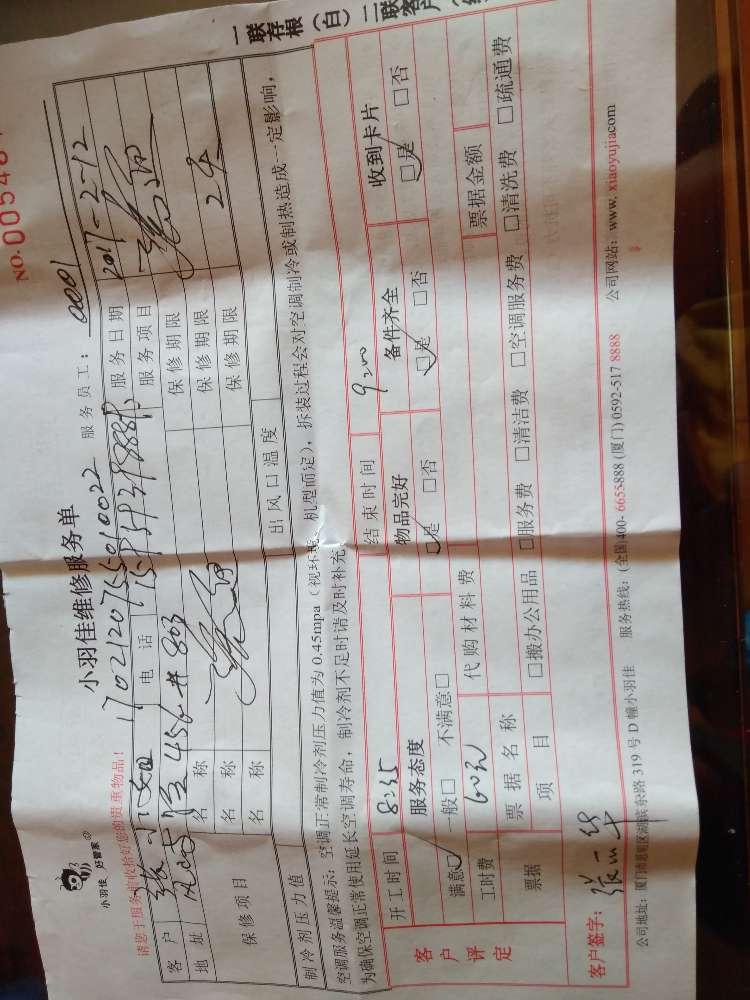 小羽佳 好管家
小羽佳维修服务单
NO.
请您于服务前收拾好您的贵重物品!
1702120755010022
服务员工: 0001
客户
电话
服务日期 2017-2-12
地址 456# 803
服务项目
保修项目
名称
保修期限
名称
保修期限
名称
保修期限 2年
制冷剂压力值
出风口温度
空调服务温馨提示: 空调正常制冷剂压力值为 0.45mpa (视环境、机型而定), 拆装过程会对空调制冷或制热造成一定影响,
为确保空调正常使用延长空调寿命, 制冷剂不足时请及时补充
客户评定
开工时间 8:35 结束时间 9:00
服务态度 物品完好 备件齐全 收到卡片
满意☑ 一般□ 不满意□ ☑是 □否 ☑是 □否 ☑是 □否
工时费 60元 代购材料费
票据 票据名称 票据金额
项目 □搬办公用品 □服务费 □清洁费 □空调服务费 □清洗费 □疏通费
客户签字:
公司地址: 厦门市思明区湖滨东路 319 号 D 幢小羽佳 服务热线: (全国)400-6655-888 (厦门) 0592-517 8888 公司网站: www. xiaoyujia.com
一联存根(白)
二联客户